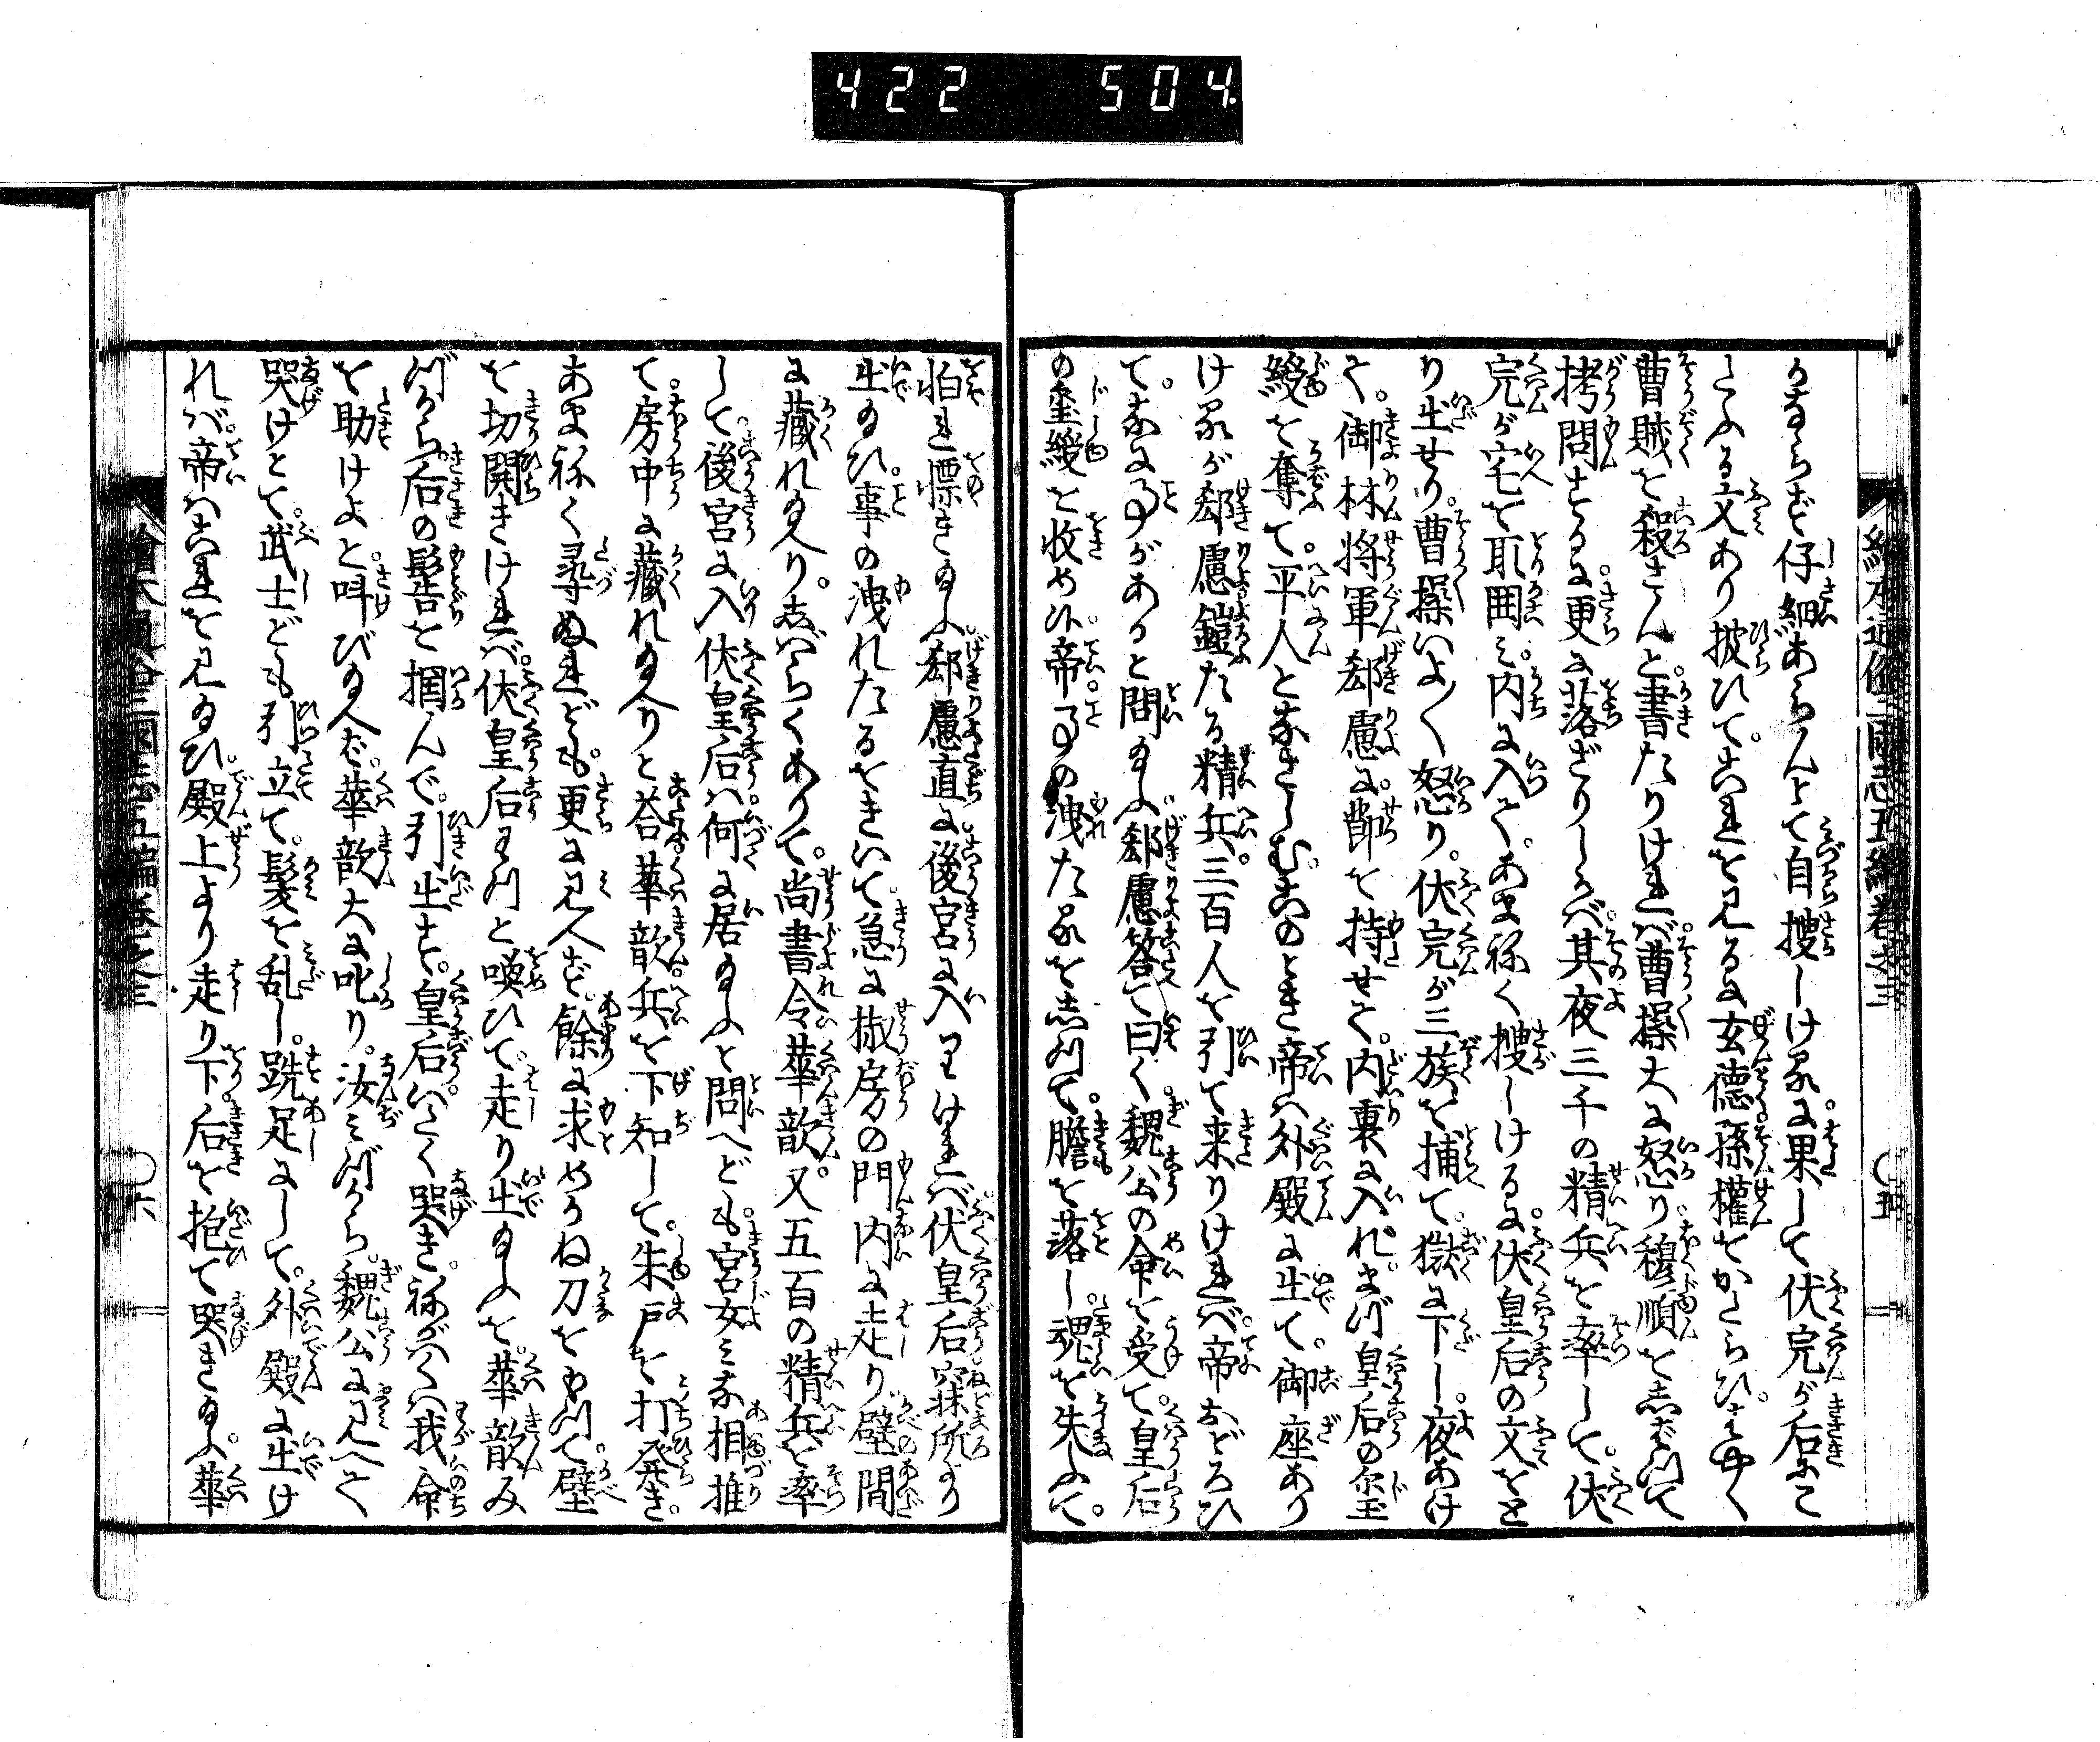 422 504
かならず仔細あらんとて自搜しけるに。果して伏完が后にこ
たふる文あり披ひて。これを見るに玄德孫權をかたらひ。はやく
曹賊を殺さんと。書たりければ。曹操大に怒り。穆順をしばつて
拷問するに。更に落ざりしかば。其夜三千の精兵を率して。伏
完が宅を取囲み。内に入て。あまねく搜しけるに。伏皇后の文をと
り出せり。曹操いよ〱怒り。伏完が三族を捕て。獄に下し。夜あけ
て。御林將軍郄慮に。節を持せて。内裏に入れ。まづ皇后の璽
綬を奪て。平人となさしむ。このとき帝は外殿に出て。御座あり
けるが郄慮鎧たる精兵。三百人を引て来りければ。帝おどろひ
て。なに事があると問給ふ。郄慮答て曰く魏公の命を受て。皇后
の璽綬を收めに。帝。事の洩たるをしつて。膽を落し。魂を失ふて。
怕れ慄き給ふ。郄慮直に。後宮に入りければ。伏皇后寐所より
出給ひ。事の洩れたるをきいて。急に椒房の門内に走り。壁間
に藏れ給へり。しばらくありて。尚書令華歆。又五百の精兵を率
して。後宮に入伏皇后は。何に居給ふと問へども。宮女みな相推
て。房中に藏れ給へりと荅。華歆兵を下知して。朱戸を打発き。
あまねく尋ぬれども。更に見へず。餘に求めかね刀をもつて。壁
を切開きければ。伏皇后わつと喚ひて。走り出給ふを。華歆み
づから。后の髻を掴んで。引出す。皇后いたく哭き。ねがはくは我命
を助けよと。呌び給へば。華歆大に叱り。汝みづから。魏公に見へて
哭けとて。武士ども引立て。髮を乱し。跣足にして。外殿に出け
れバ。帝はこれを見給ひ。殿上より走り下。后を抱て哭き給ふ。華